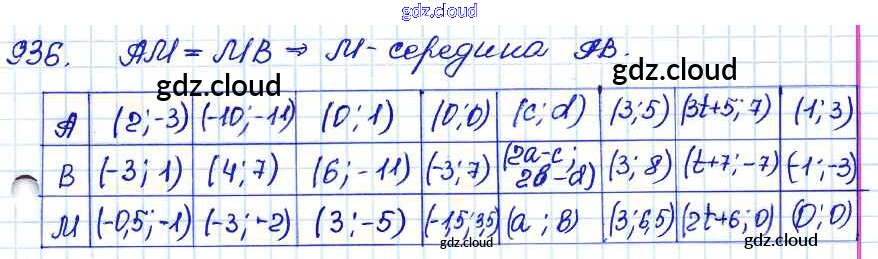 gdz.cloud
936. AM = MB ⇒ M - середина AB.
gdz.cloud
gdz.cloud
A (2;-3) (-10;-11) (0;1) (0;0) (c;d) (3;5) (3t+5;7) (1;3)
B (-3;1) (4;7) (6;-11) (-3;7) (2a-c; 2b-d) (3;8) (t+7;-7) (-1;-3)
M (-0,5;-1) (-3;-2) (3;-5) (-1,5;3,5) (a;b) (3;6,5) (2t+6;0) (0;0)
gdz.cloud
gdz.cloud